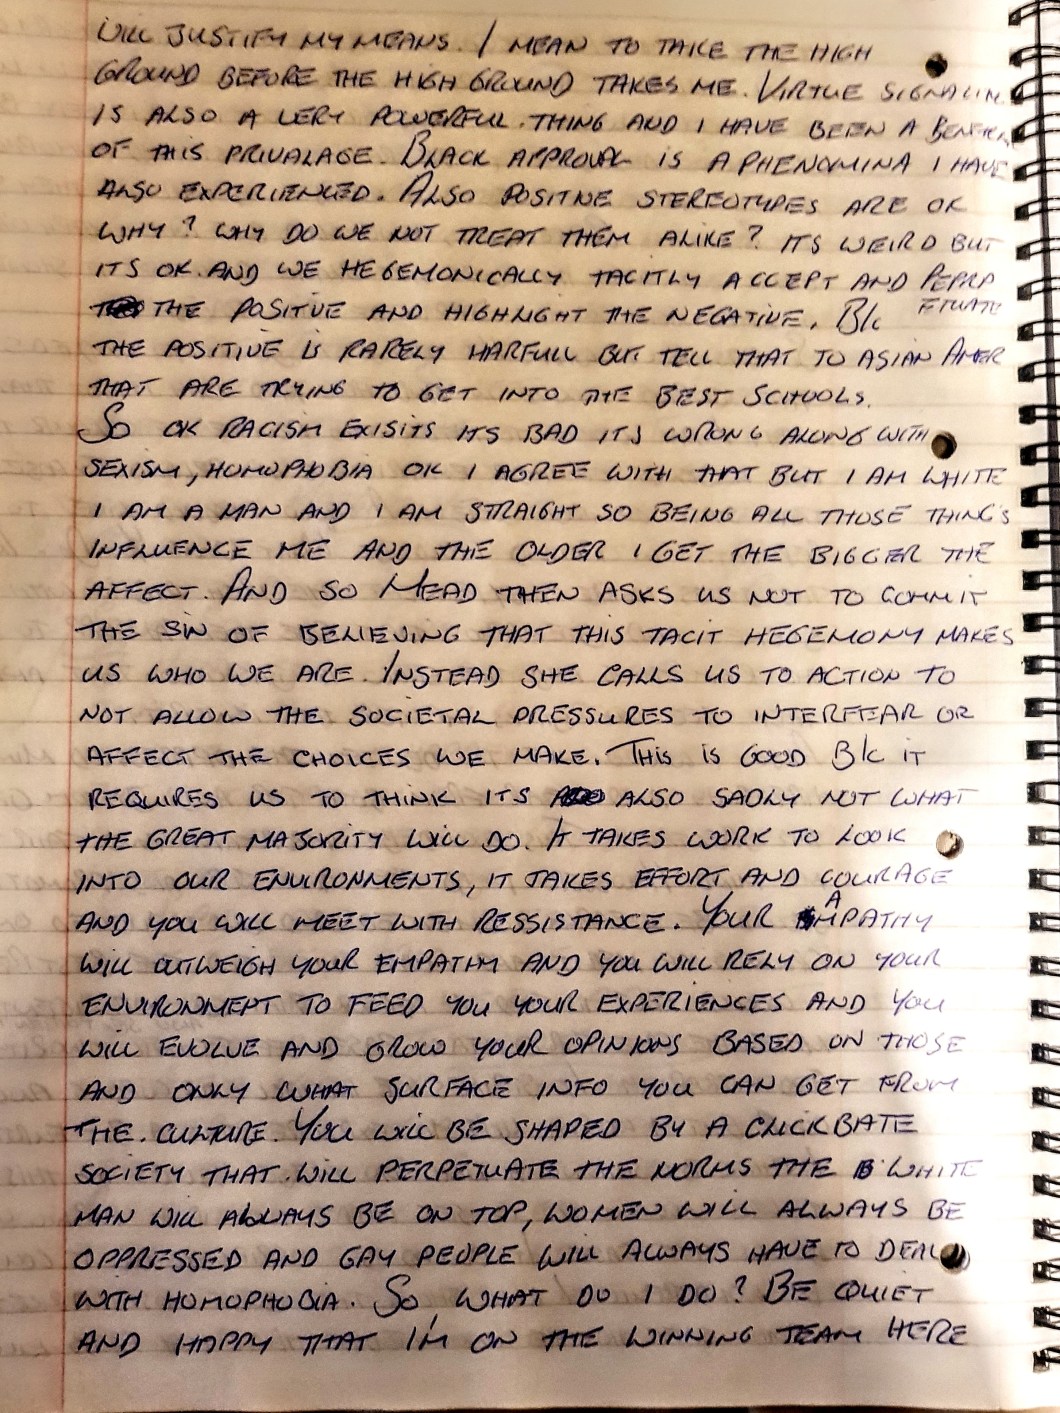 WILL JUSTIFY MY MEANS. I MEAN TO TAKE THE HIGH
GROUND BEFORE THE HIGH GROUND TAKES ME. VIRTUE SIGNALING
IS ALSO A VERY POWERFUL THING AND I HAVE BEEN A
OF THIS PRIVALAGE. BLACK APPROVAL IS A PHENOMINA I HAVE
ALSO EXPERIENCED. ALSO POSITIVE STEREOTYPES ARE OK
WHY? WHY DO WE NOT TREAT THEM ALIKE? ITS WEIRD BUT
ITS OK. AND WE HEGEMONICALLY TACITLY ACCEPT AND PERP
ETUATE
THE POSITIVE AND HIGHLIGHT THE NEGATIVE. B/C
THE POSITIVE IS RARELY HARFULL BUT TELL THAT TO ASIAN AMER
THAT ARE TRYING TO GET INTO THE BEST SCHOOLS.
SO OK RACISM EXISITS ITS BAD ITS WRONG ALONG WITH
SEXISM, HOMOPHOBIA OK I AGREE WITH THAT BUT I AM WHITE
I AM A MAN AND I AM STRAIGHT SO BEING ALL THOSE THING'S
INFLUENCE ME AND THE OLDER I GET THE BIGGER THE
AFFECT. AND SO MEAD THEN ASKS US NOT TO COMMIT
THE SIN OF BELIEVING THAT THIS TACIT HEGEMONY MAKES
US WHO WE ARE. INSTEAD SHE CALLS US TO ACTION TO
NOT ALLOW THE SOCIETAL PRESSURES TO INTERFEAR OR
AFFECT THE CHOICES WE MAKE. THIS IS GOOD B/C IT
REQUIRES US TO THINK ITS ALSO SADLY NOT WHAT
THE GREAT MAJORITY WILL DO. IT TAKES WORK TO LOOK
INTO OUR ENVIRONMENTS, IT TAKES EFFORT AND COURAGE
AND YOU WILL MEET WITH RESSISTANCE. YOUR APATHY
WILL OUTWEIGH YOUR EMPATHY AND YOU WILL RELY ON YOUR
ENVIRONMENT TO FEED YOU YOUR EXPERIENCES AND YOU
WILL EVOLVE AND GROW YOUR OPINIONS BASED ON THOSE
AND ONLY WHAT SURFACE INFO YOU CAN GET FROM
THE CULTURE. YOU WILL BE SHAPED BY A CLICKBATE
SOCIETY THAT WILL PERPETUATE THE NORMS THE WHITE
MAN WILL ALWAYS BE ON TOP, WOMEN WILL ALWAYS BE
OPPRESSED AND GAY PEOPLE WILL ALWAYS HAVE TO DEAL
WITH HOMOPHOBIA. SO WHAT DO I DO? BE QUIET
AND HAPPY THAT I'M ON THE WINNING TEAM HERE